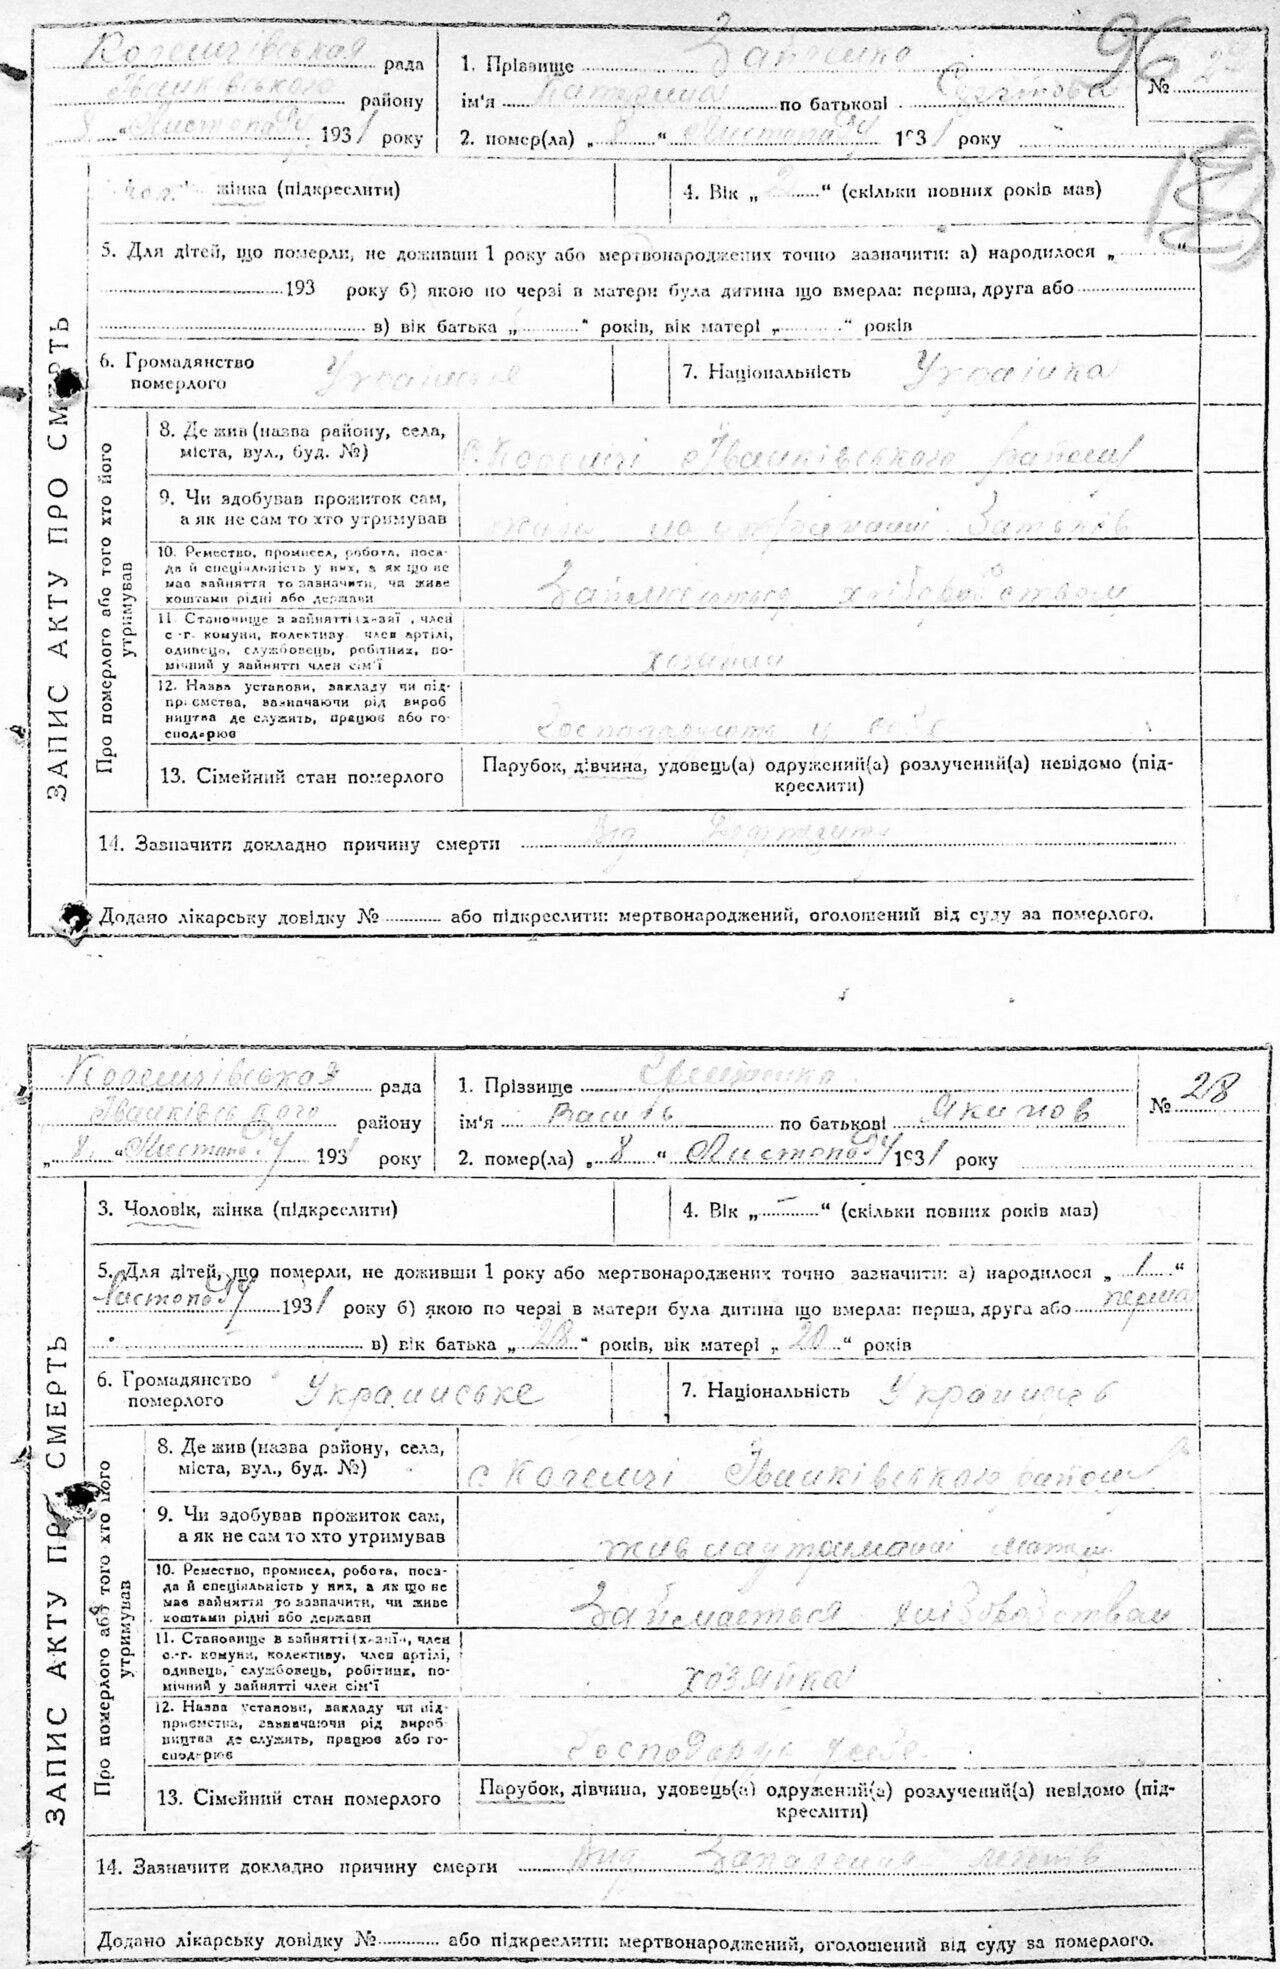 96
рада
Іванківського району
8 "Листопаду 1931 року
1. Прізвище
ім'я Катерина по батькові
2. помер(ла) „ 8 “ Листопаду 1931 року
№ 27
ЗАПИС АКТУ ПРО СМЕРТЬ
жінка (підкреслити)
4. Вік „ 2 “ (скільки повних років мав)
5. Для дітей, що померли, не доживши 1 року або мертвонароджених точно зазначити: а) народилося „ “
193 року б) якою по черзі в матери була дитина що вмерла: перша, друга або
в) вік батька „ “ років, вік матері „ “ років
6. Громадянство
померлого
Українське
7. Національність Українка
Про померлого або того хто його
утримував
8. Де жив (назва району, села,
міста, вул., буд. №)
с. Іванківського району
9. Чи здобував прожиток сам,
а як не сам то хто утримував
жила на утриманні батьків
10. Ремество, промисел, робота, поса-
да й спеціяльність у них, а як що не
має зайняття то зазначити, чи живе
коштами рідні або держави
Займається хліборобством
11. Становище в зайнятті (х-зяї , член
с -г. комуни, колективу, член артілі,
одинець, службовець, робітник, по-
мічний у зайнятті член сім'ї
12. Назва установи, закладу чи під-
приємства, зазначаючи рід вироб
ництва де служить, працює або го-
сподарює
у себе
13. Сімейний стан померлого
Парубок, дівчина, удовець(а) одружений(а) розлучений(а) невідомо (під-
креслити)
14. Зазначити докладно причину смерти Від
Додано лікарську довідку № або підкреслити: мертвонароджений, оголошений від суду за померлого.
рада
Іванківського району
„ 8 “ Листопаду 1931 року
1. Прізвище
ім'я Василь по батькові Якимов
2. помер(ла) „ 8 “ Листопаду 1931 року
№ 28
ЗАПИС АКТУ ПРО СМЕРТЬ
3. Чоловік, жінка (підкреслити)
4. Вік „ — “ (скільки повних років мав)
5. Для дітей, що померли, не доживши 1 року або мертвонароджених точно зазначити: а) народилося „ 1 “
Листопаду 1931 року б) якою по черзі в матери була дитина що вмерла: перша, друга або перша
в) вік батька „ 28 “ років, вік матері „ 20 “ років
6. Громадянство
померлого
Украинське
7. Національність Украинець
Про померлого або того хто кого
утримував
8. Де жив (назва району, села,
міста, вул., буд. №)
с. Іванківського району
9. Чи здобував прожиток сам,
а як не сам то хто утримував
жив на утриманні матери
10. Ремество, промисел, робота, поса-
да й спеціяльність у них, а як що не
має зайняття то зазначити, чи живе
коштами рідні або держави
Займається хліборобством
11. Становище в зайнятті (х-зяїн, член
с.-г. комуни, колективу, член артілі,
одинець, службовець, робітник, по-
мічний у зайнятті член сім'ї
хозяйка
12. Назва установи, закладу чи під-
приємства, зазначаючи рід вироб-
ництва де служить, працює або го-
сподарює
Господарує у себе
13. Сімейний стан померлого
Парубок, дівчина, удовець(а) одружений(а) розлучений(а) невідомо (під-
креслити)
14. Зазначити докладно причину смерти Від Запалення легенів
Додано лікарську довідку № або підкреслити: мертвонароджений, оголошений від суду за померлого.